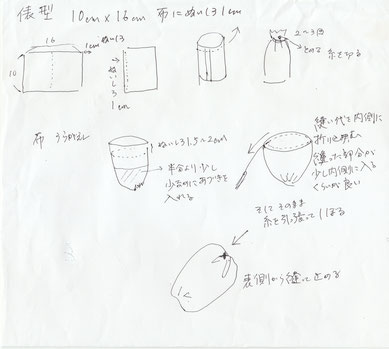 俵型 10cm×16cm 布にぬいしろ1cm
16
1cm ぬいしろ
10
ぬいしろ
1cm
2〜3回
とめる 糸を切る
布 うらがえし
ぬいしろ1.5〜2cm
半分より少し
少なめにあづきを
入れる
縫い代を内側に
折り込み
縫った部分が
少し内側に入る
くらいが良い
そしてそのまま
糸を引っ張ってしぼる
裏側から縫って止める